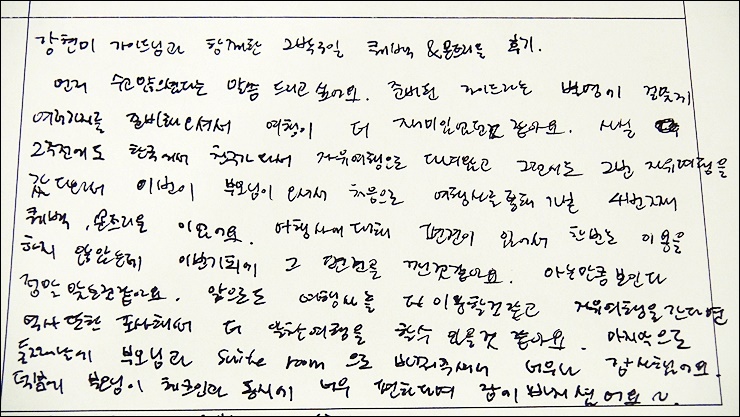 강현미 가이드님과 함께한 2박3일 퀘백 & 몬트리올 후기.
먼저 수고많으셨다는 말씀 드리고 싶어요. 준비된 가이드라는 별명에 걸맞게
여러가지를 준비해오셔서 여행이 더 재미있었던것 같아요. 사실
2주전에도 한국에서 친구가 와서 자유여행으로 다녀왔고 그전에도 2번 자유여행을
갔다와서 이번이 부모님이 오셔서 처음으로 여행사를 통해 가본 4번째
퀘백, 몬트리올 이였어요. 여행사에 대해 편견이 있어서 한번도 이용을
하지 않았는데 이번기회에 그 편견을 깬것같아요. 아는만큼 보인다
정말 맞는것 같아요. 앞으로도 여행사를 더 이용할것 같고 자유여행을 간다면
역사 또한 조사해서 더 알찬여행을 할수 있을것 같아요. 마지막으로
부모님과 Suite room 으로 너무나 감사했어요.
부모님이 체크인과 동시에 너무 편하다며 잠이 빠지셨어요~